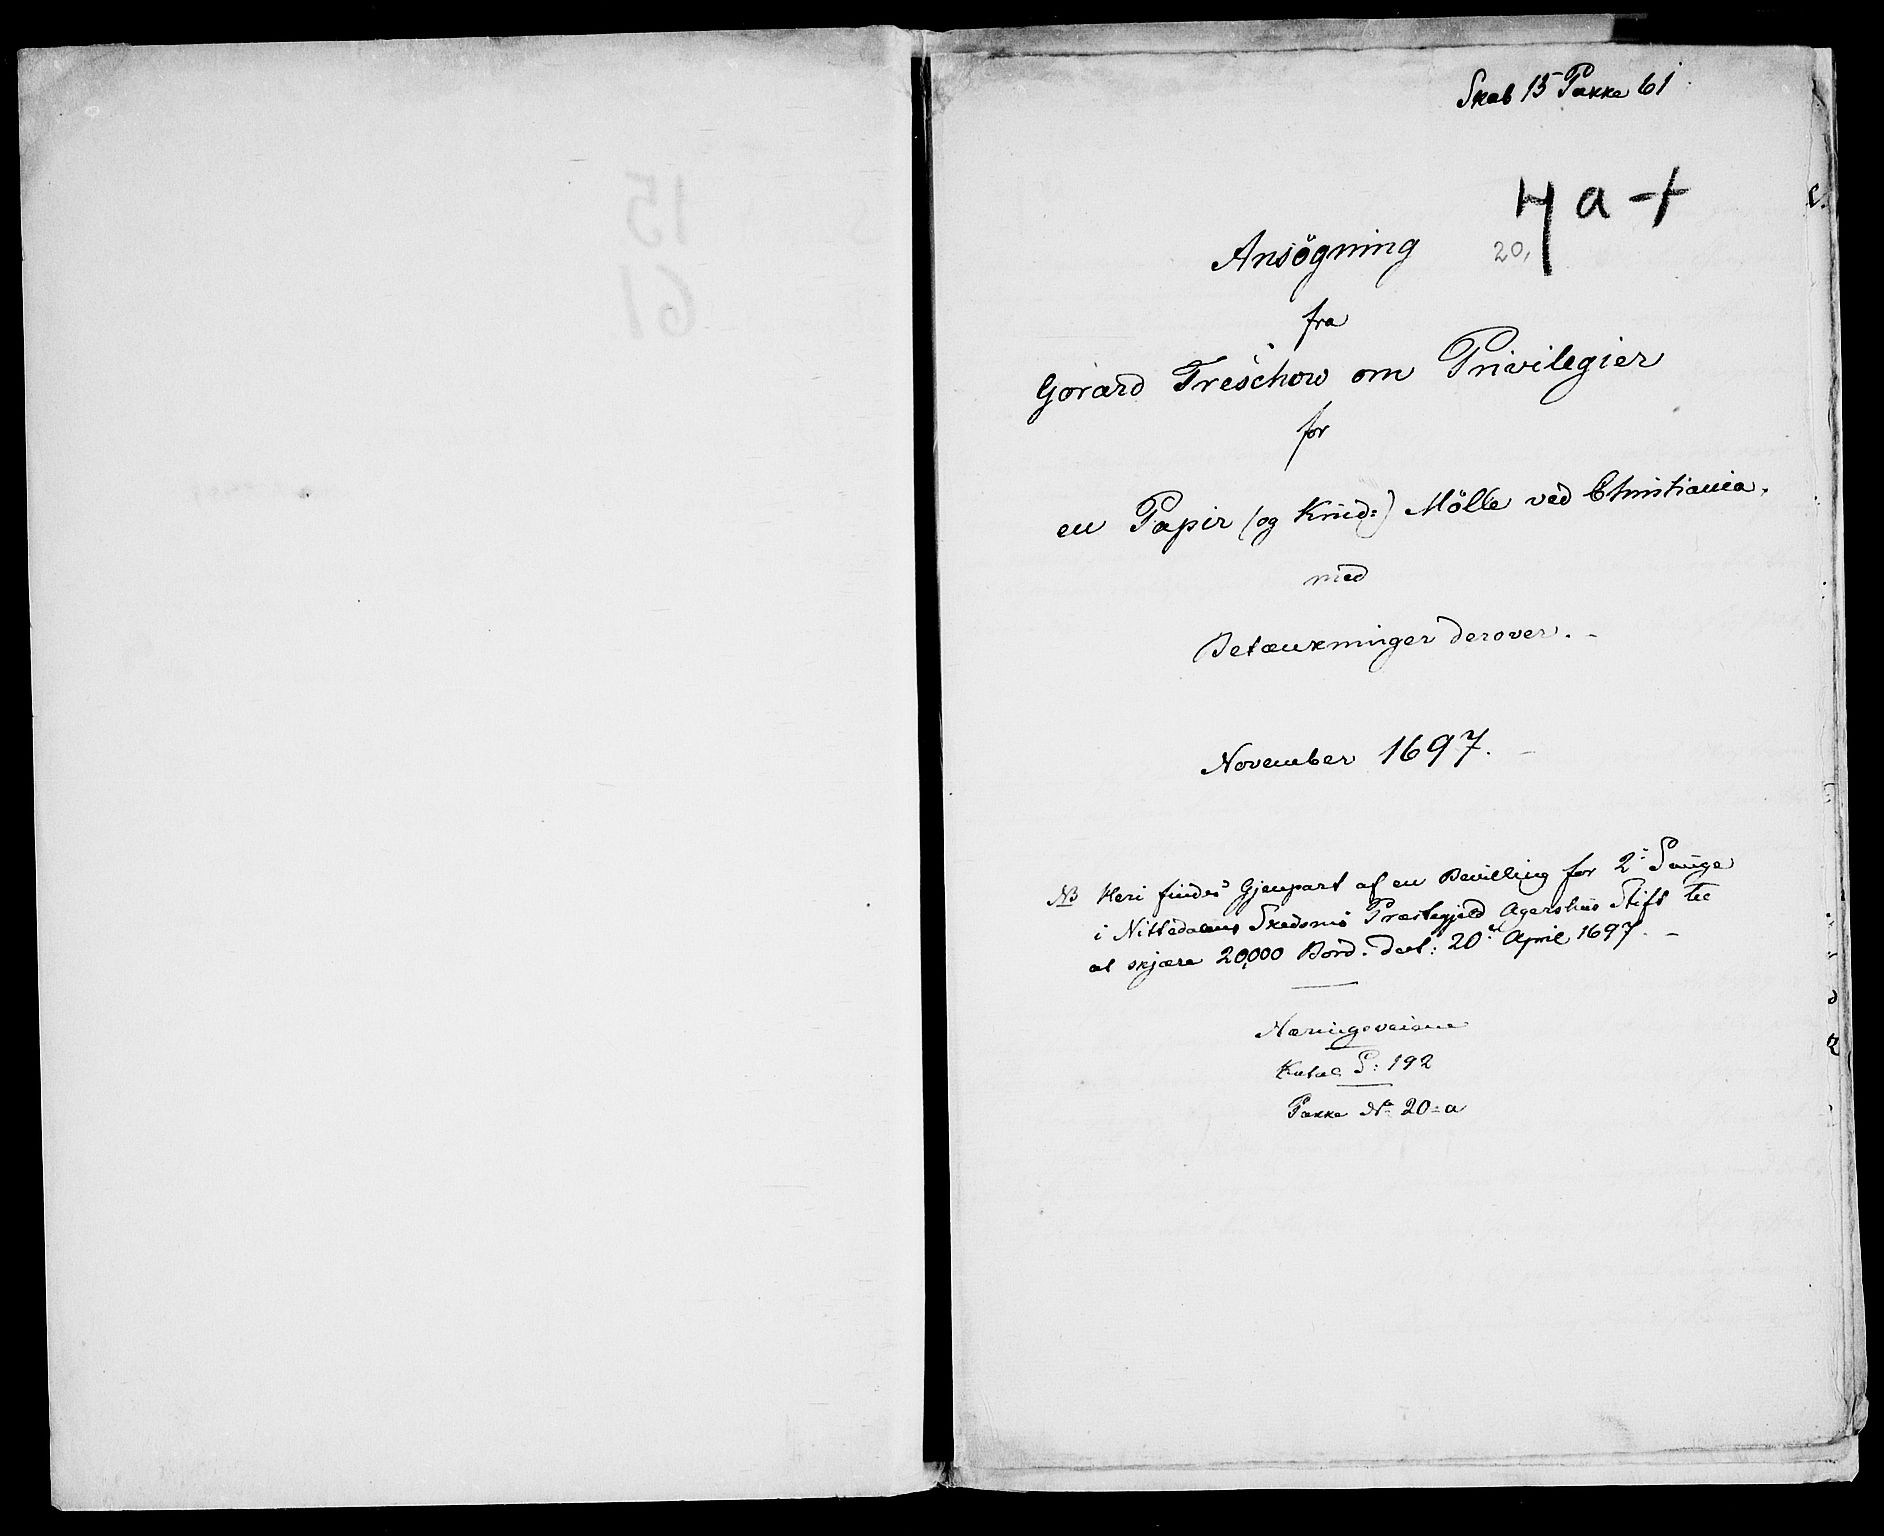 Skab 15 Pakke 61
4 a-f
20,
Ansögning
fra
Gerard Treschow om Privilegier
for
en Papir (og Krud:) Mölle ved Christiania.
med
Betænkninger derover.
November 1697.
NB Heri findes Gjenpart af en Bevilling for 2: Sauge
i Nittedalens Skedsmo Præstegjeld Agershus Stift til
at skjære 20,000 Bord. dat: 20de April 1697.
Næringsveiene
Katal P: 192
Pakke No 20-a
15
61